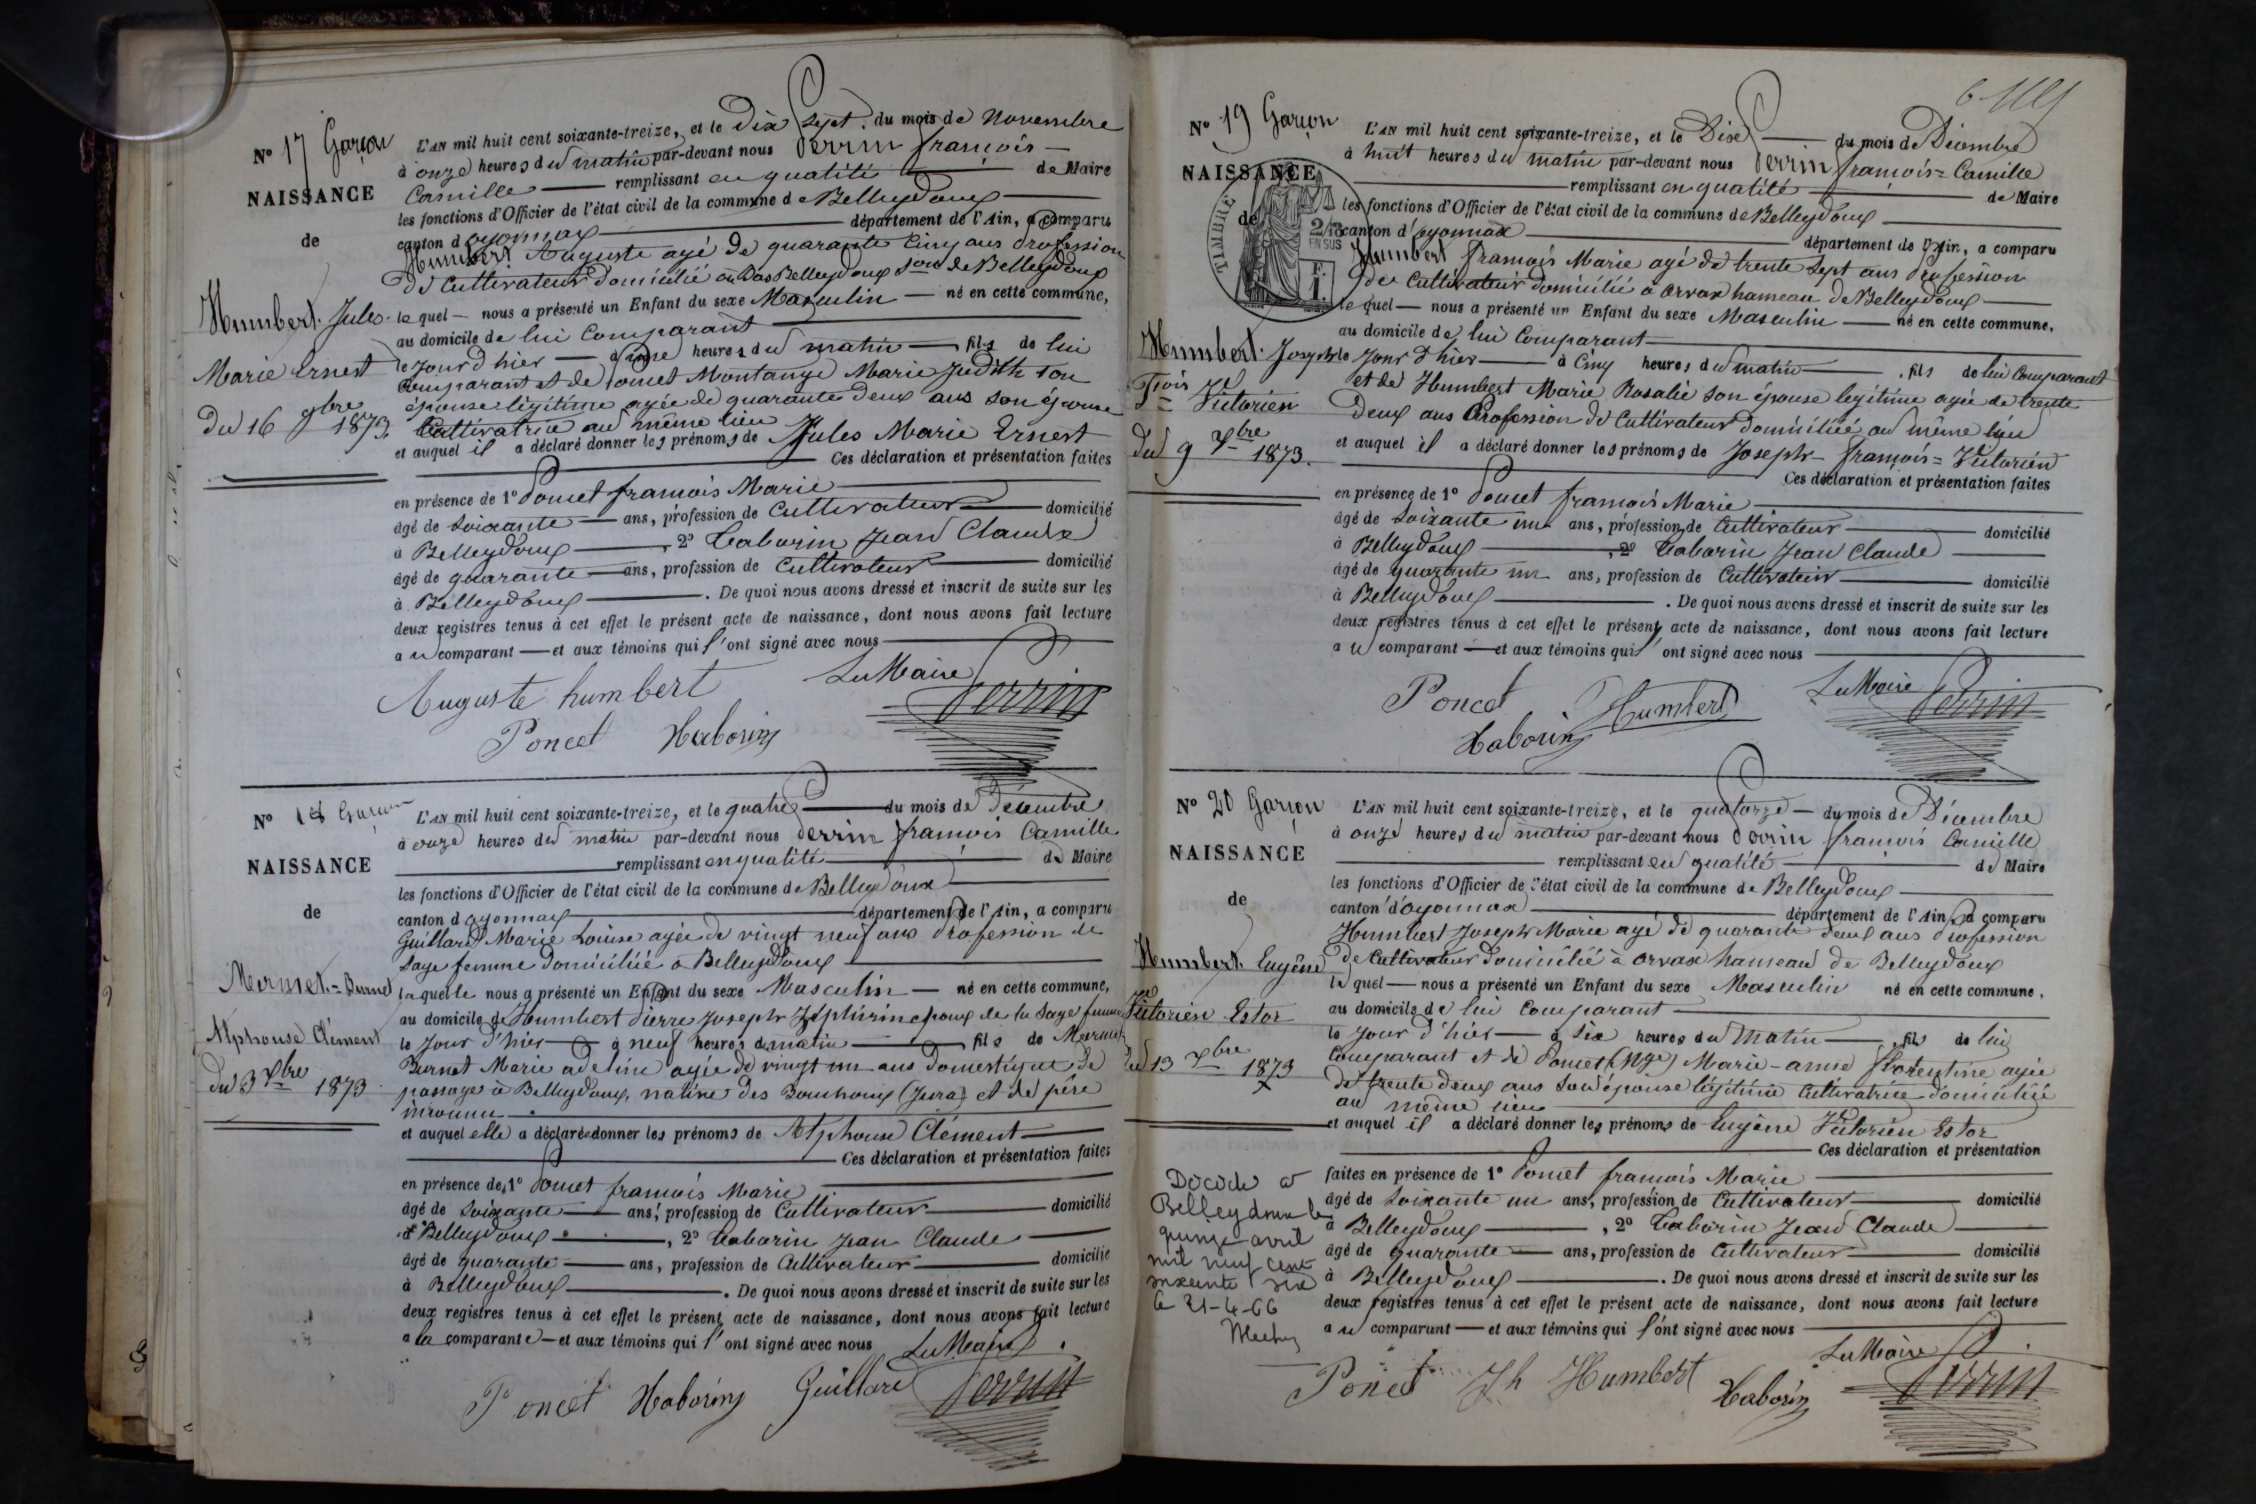 N° 17 Garçon
NAISSANCE
de
Humbert. Jules
Marie Ernest
Du 16 9bre 1873.
L'AN mil huit cent soixante-treize, et le Dix Sept. du mois de Novembre
à onze heures du matin par-devant nous Perrin françois
Camille remplissant en qualité de Maire
les fonctions d'Officier de l'état civil de la commune de Belleydoux
canton d'oyonnax département de l'Ain, a comparu
Humbert Auguste agé de quarante Cinq ans Profession
de Cultivateur domicilié au Bas Belleydoux Son de Belleydoux
le quel nous a présenté un Enfant du sexe Masculin né en cette commune,
au domicile de lui Comparant
le jour d'hier à une heures du matin fils de lui
Comparant et de Poncet Montange Marie Judith son
épouse légitime agée de quarante deux ans son épouse
Cultivatrice au même lieu
et auquel il a déclaré donner les prénoms de Jules Marie Ernest
Ces déclaration et présentation faites
en présence de 1° Poncet françois Marie
âgé de Soixante ans, profession de Cultivateur domicilié
à Belleydoux, 2° Tabourin Jean Claude
âgé de quarante ans, profession de Cultivateur domicilié
à Belleydoux. De quoi nous avons dressé et inscrit de suite sur les
deux registres tenus à cet effet le présent acte de naissance, dont nous avons fait lecture
au comparant et aux témoins qui l'ont signé avec nous
Le Maire
Auguste humbert
Perrin
Poncet Tabourin
N° 18 Garçon
NAISSANCE
de
Mermet=Burnet
Alphonse Clément
du 3 Xbre 1873
L'AN mil huit cent soixante-treize, et le quatre du mois de Décembre
à onze heures du matin par-devant nous Perrin françois Camille
remplissant en qualité de Maire
les fonctions d'Officier de l'état civil de la commune de Belleydoux
canton d oyonnax département de l'Ain, a comparu
Guillard Marie Louise agée de vingt neuf ans Profession de
Sage femme domiciliée à Belleydoux
laquelle nous a présenté un Enfant du sexe Masculin né en cette commune,
au domicile de Humbert Pierre Joseph Zéphirin époux de la Sage femme
le Jour d'hier à neuf heures du matin fils de Mermet
Burnet Marie adeline agée de vingt un ans domestique de
passage à Belleydoux, native des Bouchoux (Jura) et de père
inconnu
et auquel elle a déclaré donner les prénoms de Alphonse Clément
Ces déclaration et présentation faites
en présence de 1° Poncet françois Marie
âgé de Soixante ans, profession de Cultivateur domicilié
à Belleydoux, 2° Tabourin Jean Claude
âgé de quarante ans, profession de Cultivateur domicilié
à Belleydoux. De quoi nous avons dressé et inscrit de suite sur les
deux registres tenus à cet effet le présent acte de naissance, dont nous avons fait lecture
a la comparante et aux témoins qui l'ont signé avec nous
Le Maire
Poncet Tabourin Guillard Perrin
N° 19 Garçon
NAISSANCE
de
TIMBRE
2/10 EN SUS
Humbert. Joseph
fçois = Victorien
du 9 Xbre 1873.
L'AN mil huit cent soixante-treize, et le Dix du mois de Décembre
à huit heures du matin par-devant nous Perrin françois=Camille
remplissant en qualité de Maire
les fonctions d'Officier de l'état civil de la commune de Belleydoux
canton d'oyonnax département de l'Ain, a comparu
Humbert françois Marie agé de trente Sept ans Profession
de Cultivateur domicilié à Orvax hameau de Belleydoux
le quel nous a présenté un Enfant du sexe Masculin né en cette commune,
au domicile de lui Comparant
le Jour d'hier à Cinq heures du matin fils de lui Comparant
et de Humbert Marie Rosalie son épouse légitime agée de trente
Deux ans Profession de Cultivateur domiciliée au même lieu
et auquel il a déclaré donner les prénoms de Joseph françois=Victorien
Ces déclaration et présentation faites
en présence de 1° Poncet françois Marie
âgé de Soixante un ans, profession de Cultivateur domicilié
à Belleydoux, 2° Tabourin Jean Claude
âgé de quarante un ans, profession de Cultivateur domicilié
à Belleydoux. De quoi nous avons dressé et inscrit de suite sur les
deux registres tenus à cet effet le présent acte de naissance, dont nous avons fait lecture
au comparant et aux témoins qui ont signé avec nous
Le Maire
Poncet Humbert Perrin
Tabourin
N° 20 Garçon
NAISSANCE
de
Humbert. Eugène
Victorien Estor
du 13 Xbre 1873
L'AN mil huit cent soixante-treize, et le quatorze du mois de Décembre
à onze heures du matin par-devant nous Perrin françois Camille
remplissant en qualité de Maire
les fonctions d'Officier de l'état civil de la commune de Belleydoux
canton d'oyonnax département de l'Ain, a comparu
Humbert Joseph Marie agé de quarante deux ans Profession
de Cultivateur domicilié à Orvax hameau de Belleydoux
le quel nous a présenté un Enfant du sexe Masculin né en cette commune,
au domicile de lui Comparant
le Jour d'hier à six heures du Matin fils de lui
Comparant et de Poncet (Mge) Marie-anne florentine agée
de trente deux ans son épouse légitime Cultivatrice domiciliée
au même lieu
et auquel il a déclaré donner les prénoms de Eugène Victorien Estor
Ces déclaration et présentation
faites en présence de 1° Poncet françois Marie
âgé de Soixante un ans, profession de Cultivateur domicilié
à Belleydoux, 2° Tabourin Jean Claude
âgé de quarante ans, profession de Cultivateur domicilié
à Belleydoux. De quoi nous avons dressé et inscrit de suite sur les
deux registres tenus à cet effet le présent acte de naissance, dont nous avons fait lecture
au comparant et aux témoins qui l'ont signé avec nous
Décédé à
Belleydoux le
quinze avril
mil neuf cent
soixante six
le 21-4-66
Le Maire
Poncet Jh Humbert Tabourin Perrin